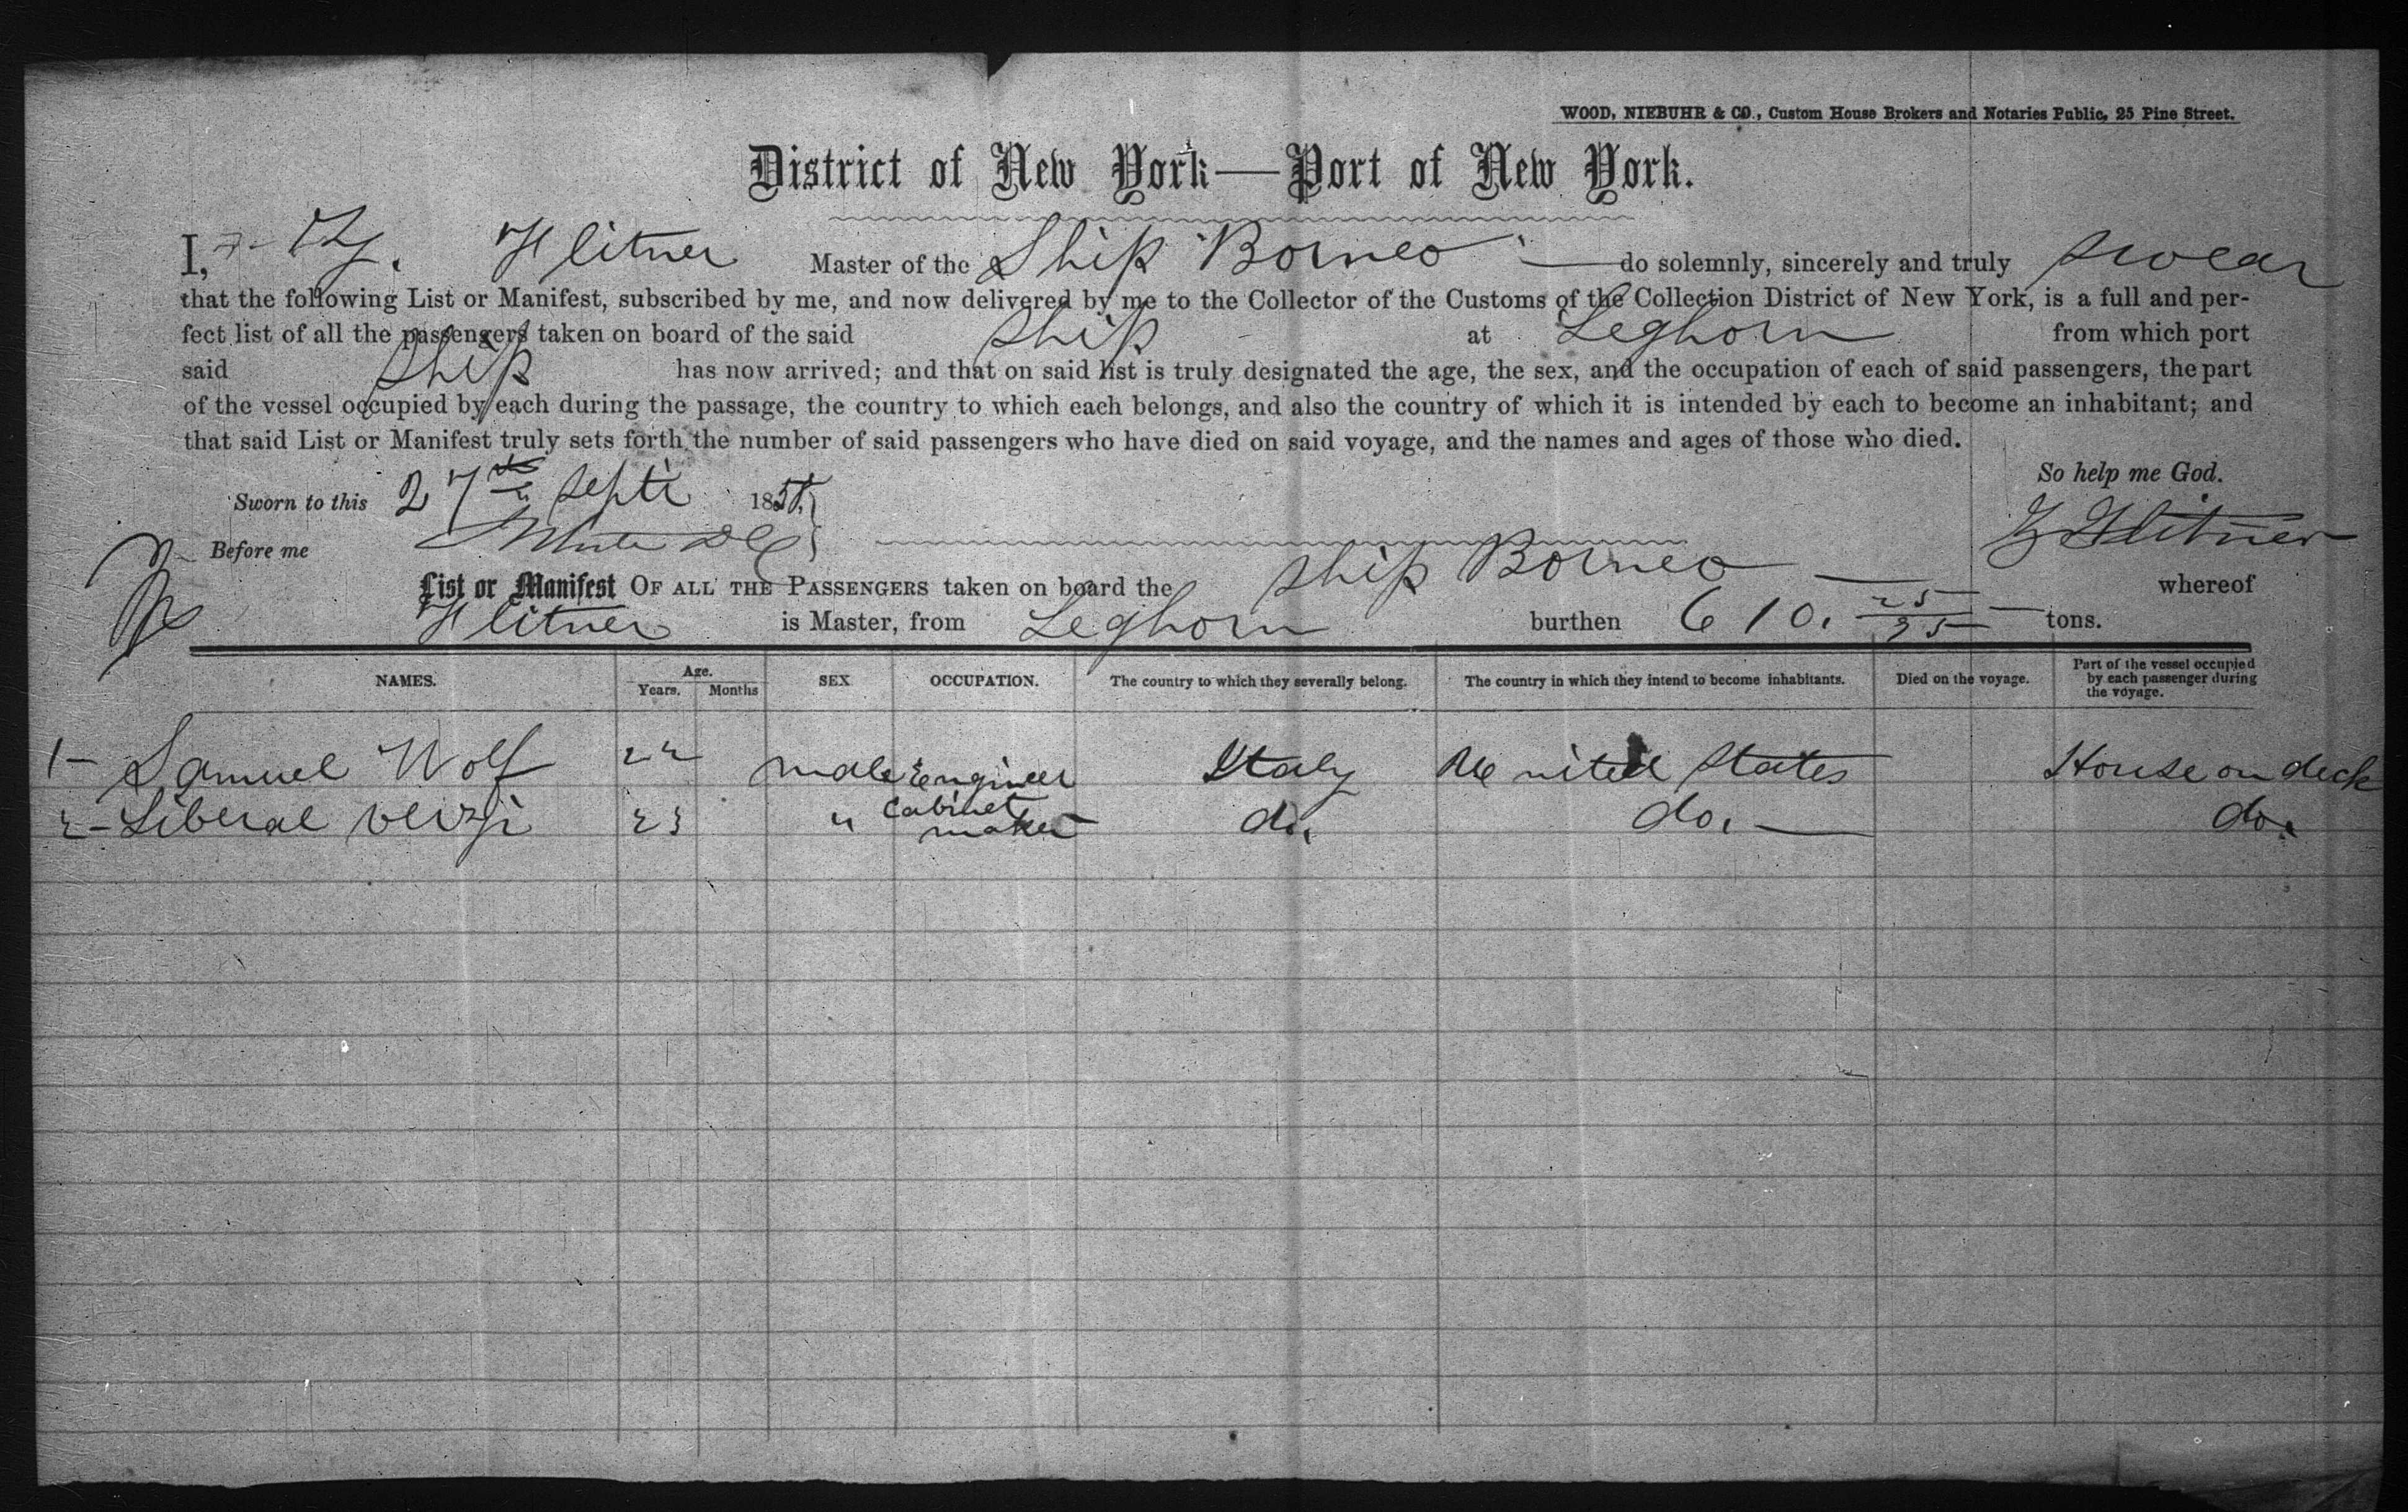 WOOD, NIEBUHR & CO., Custom House Brokers and Notaries Public, 25 Pine Street.
District of New York—Port of New York.
I, Z. Flitner Master of the Ship Borneo do solemnly, sincerely and truly swear
that the following List or Manifest, subscribed by me, and now delivered by me to the Collector of the Customs of the Collection District of New York, is a full and per-
fect list of all the passengers taken on board of the said ship at Leghorn from which port
said ship has now arrived; and that on said list is truly designated the age, the sex, and the occupation of each of said passengers, the part
of the vessel occupied by each during the passage, the country to which each belongs, and also the country of which it is intended by each to become an inhabitant; and
that said List or Manifest truly sets forth the number of said passengers who have died on said voyage, and the names and ages of those who died.
So help me God.
Sworn to this 27th Septr 185
Before me Z Flitner
List or Manifest OF ALL THE PASSENGERS taken on board the ship Borneo whereof
Flitner is Master, from Leghorn burthen 610. 25/95 tons.
NAMES. Age. Years. Months SEX OCCUPATION. The country to which they severally belong. The country in which they intend to become inhabitants. Died on the voyage. Part of the vessel occupied by each passenger during the voyage.
1- Samuel Wolf 22 male Engineer Italy United States House on deck
2- Liberal 23 " cabinet maker do. do. do.